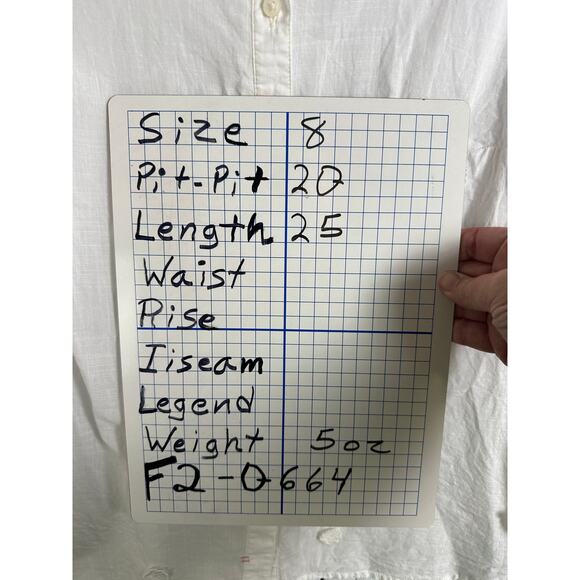 Size 8
Pit-Pit 20
Length 25
Waist
Rise
Iiseam
Legend
Weight 5oz
F2-0664